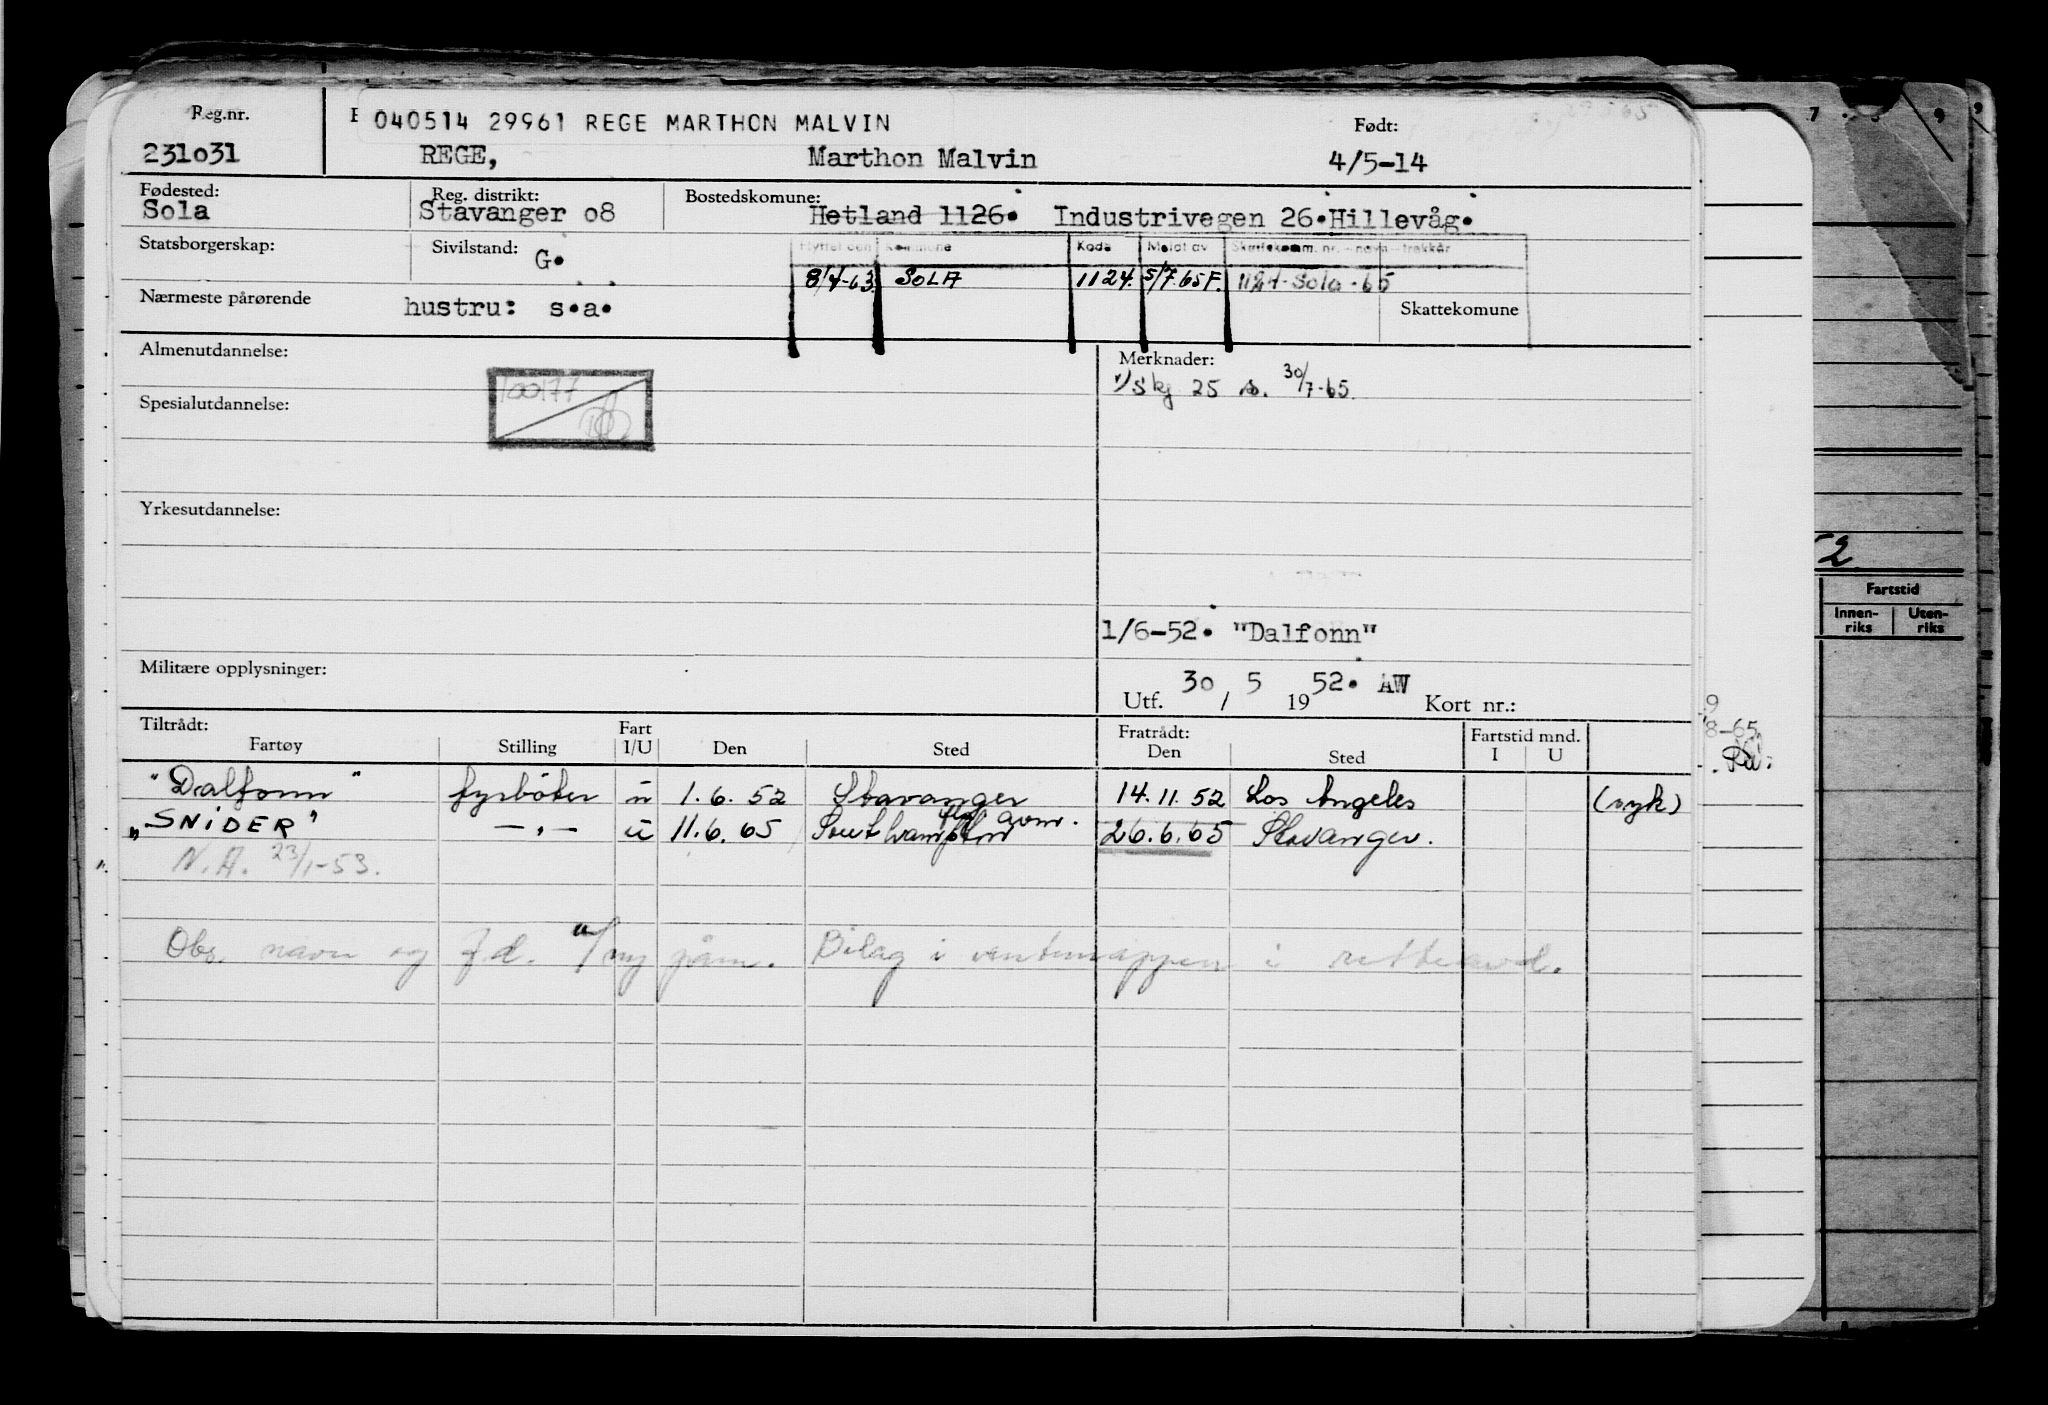 Reg.nr.
040514 29961 REGE MARTHON MALVIN
Født:
231031 REGE, Marthon Malvin 4/5-14
Fødested: Reg. distrikt: Bostedskomune:
Sola Stavanger 08 Hetland 1126. Industrivegen 26.Hillevåg.
Statsborgerskap: Sivilstand: G.
Flyttet den Kommune Kode Meldt av Skattekomm. nr. - navn - trekkår
8/4-63. SOLA 1124. 5/7.65F. 1124-Sola-65
Nærmeste pårørende hustru: s.a. Skattekomune
Almenutdannelse: Merknader:
100177
Skj 25 s. 30/7-65.
Spesialutdannelse:
Yrkesutdannelse:
1/6-52. "Dalfonn"
Militære opplysninger:
Utf. 30 / 5 1952. AW Kort nr.:
Tiltrådt: Fratrådt:
Fartøy Stilling Fart I/U Den Sted Den Sted Fartstid mnd. I U
"Dalfonn" fyrbøter u 1.6.52 Stavanger 14.11.52 Los Angeles (syk)
"SNIDER" —"— u 11.6.65 Southampton 26.6.65 Stavanger.
N.A. 23/1-53.
Obs. navn og f.d. ny gåm. Bilag i ventemappen i retteavd.
Fartstid
Innen-
riks
Uten-
riks
8-65